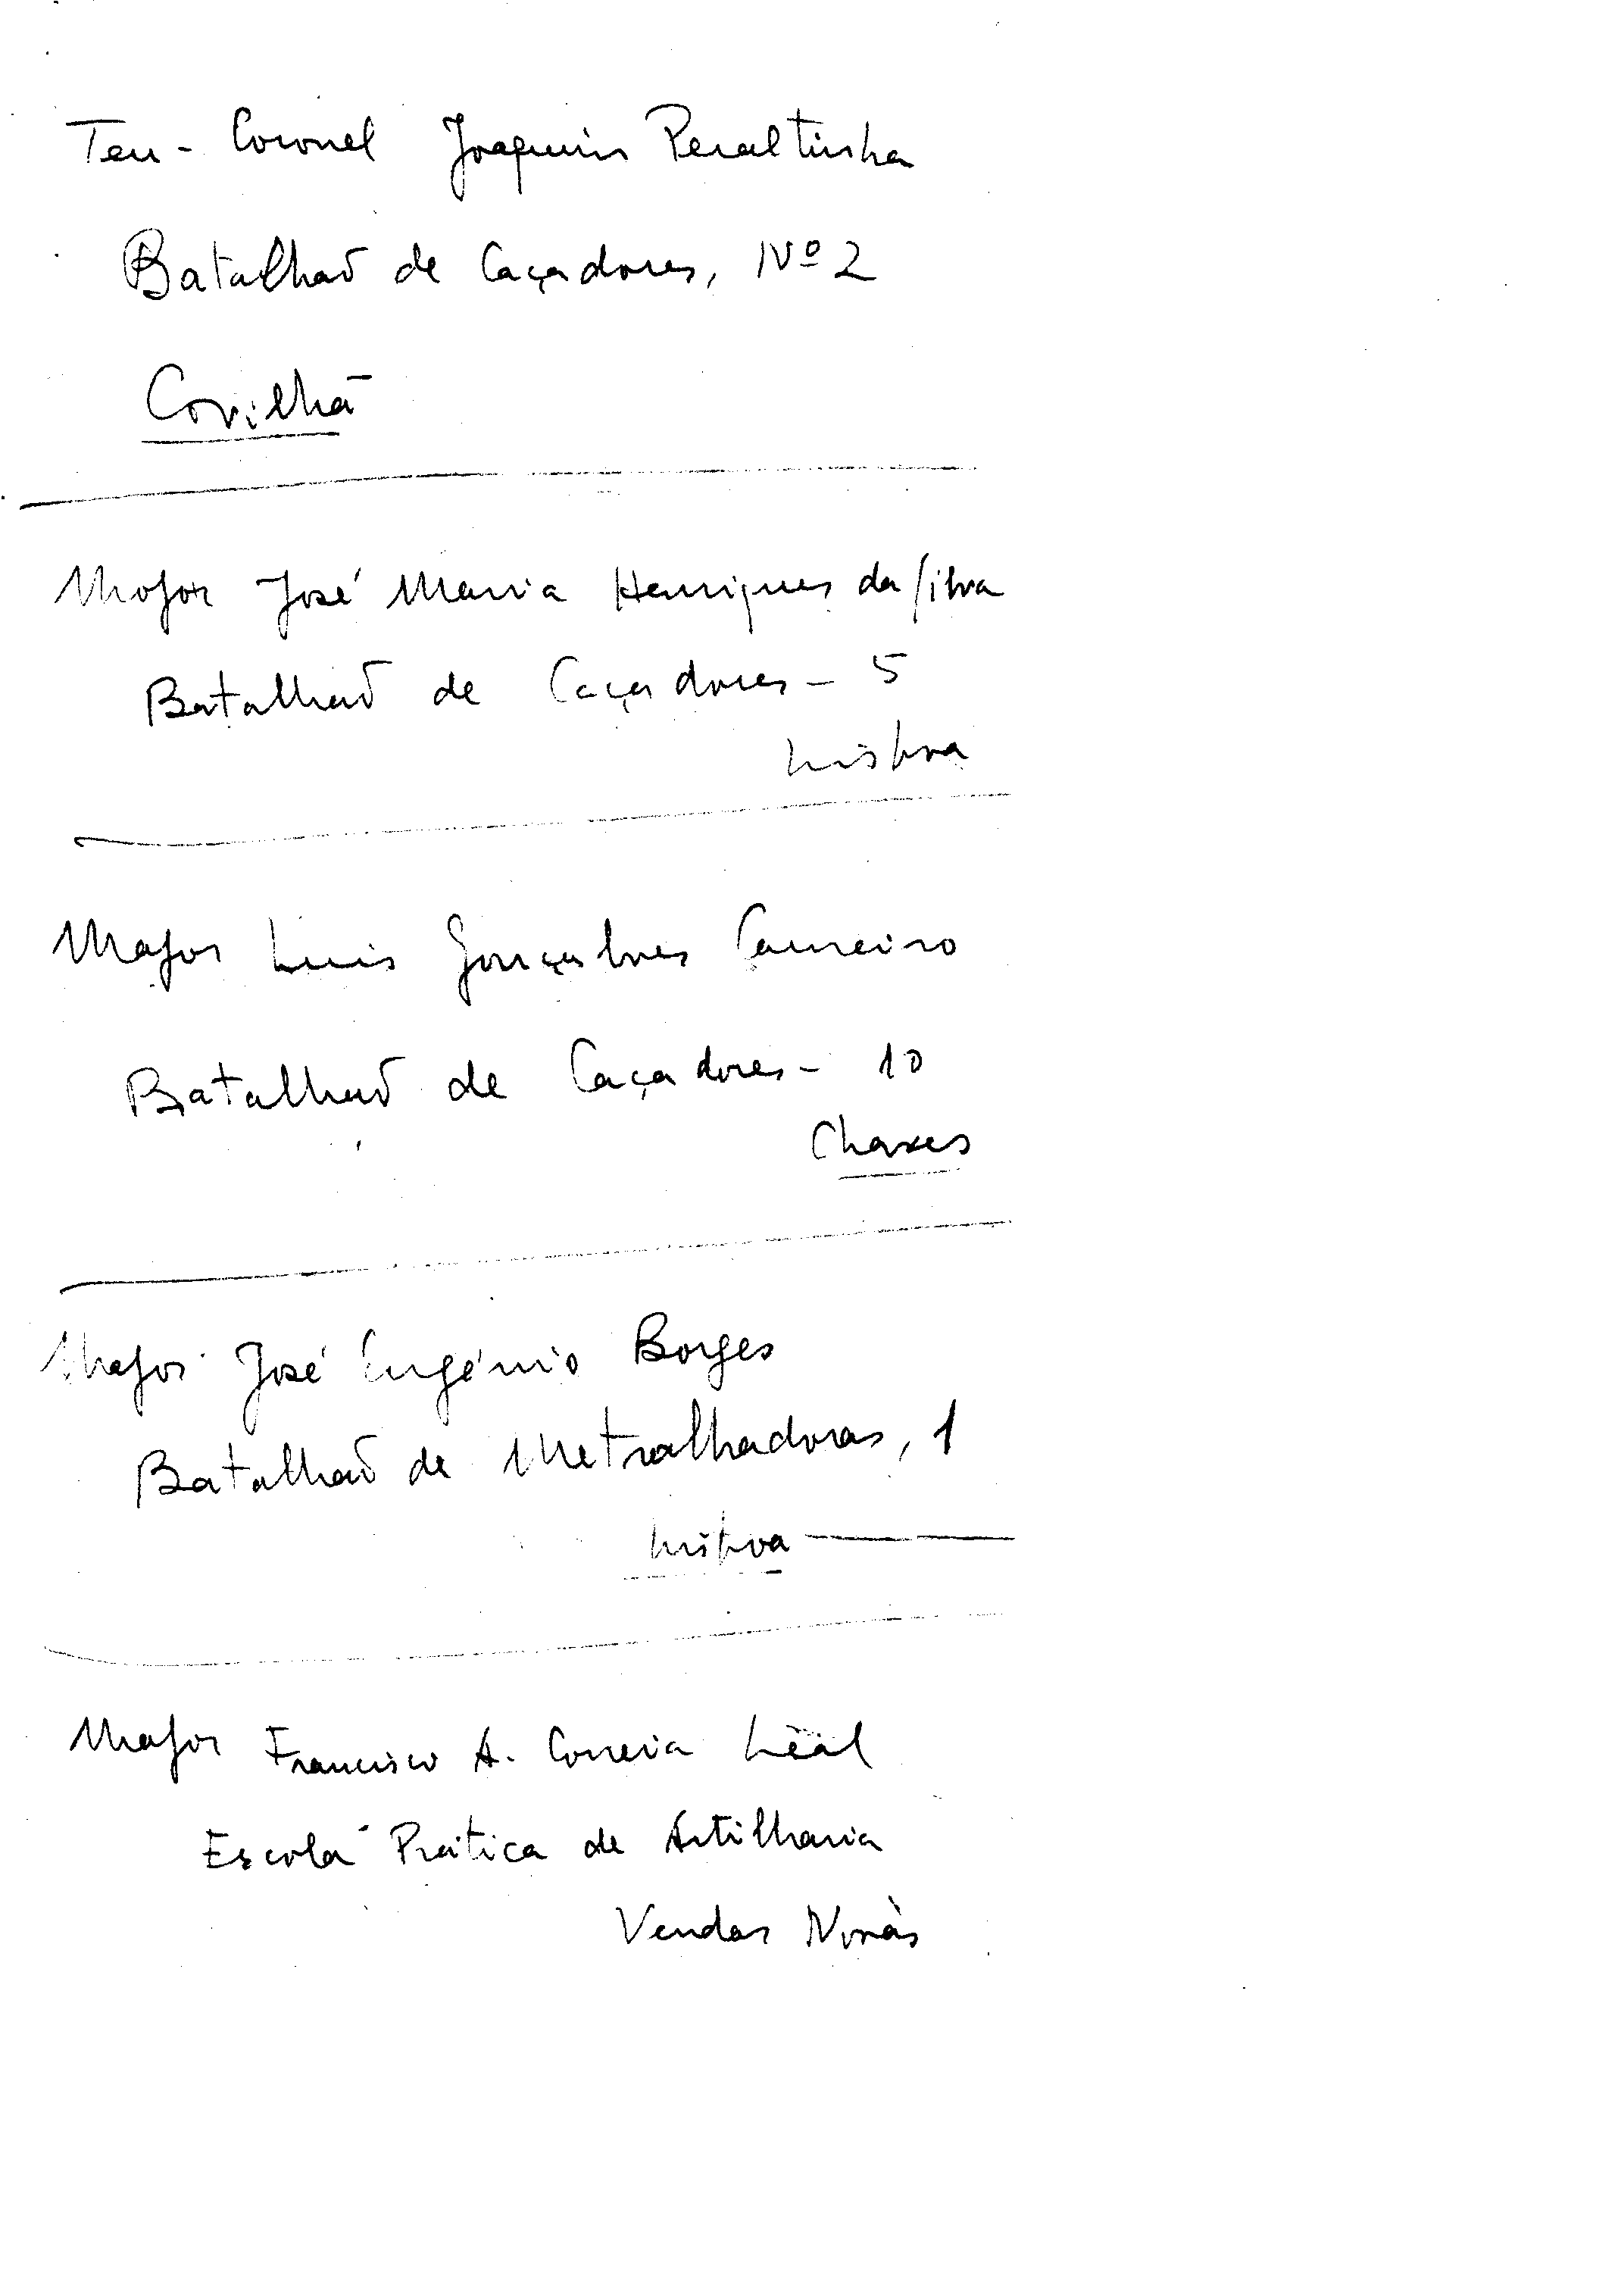 Ten - Coronel Joaquim Peraltinha
Batalhaõ de Caçadores, Nº 2
Covilhã
Major José Maria Henriques da Silva
Batalhaõ de Caçadores - 5
Lisboa
Major Luis Gonçalves Carneiro
Batalhaõ de Caçadores - 10
Chaves
Major José Eugénio Borges
Batalhaõ de Metralhadoras, 1
Lisboa
Major Francisco A. Correia Leal
Escola Prática de Artilharia
Vendas Novas